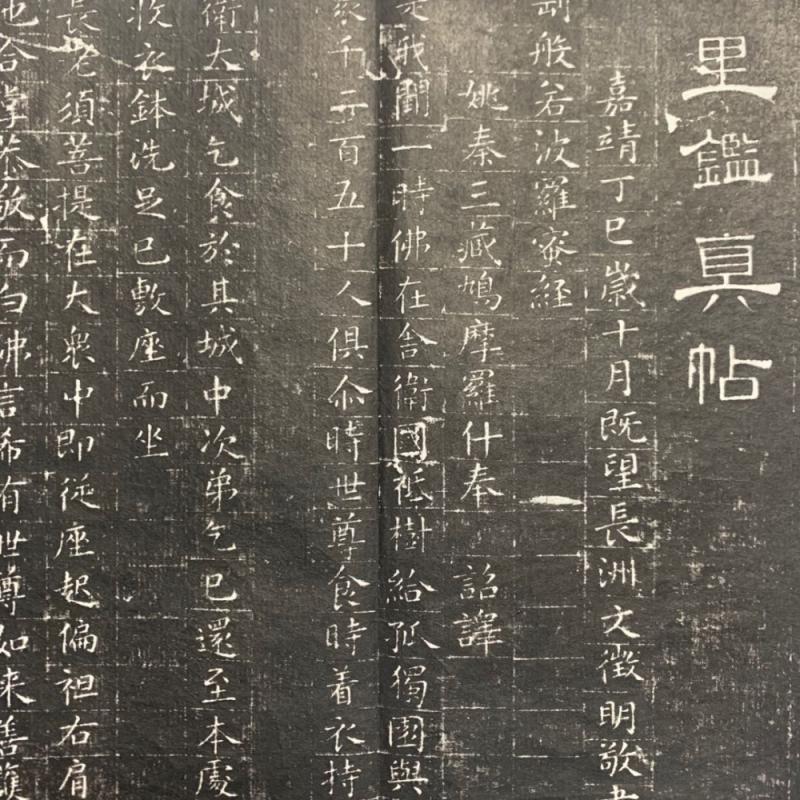 里鑑真帖
嘉靖丁巳歲十月既望長洲文徵明敬書
剛般若波羅蜜経
姚秦三藏鳩摩羅什奉 詔譯
是我聞一時佛在舎衛國祗樹給孤獨園與
衆千二百五十人俱尒時世尊食時着衣持
衛大城乞食於其城中次弟乞已還至本處
收衣鉢洗足已敷座而坐
長老須菩提在大衆中即從座起偏袒右肩
地合掌恭敬而白佛言希有世尊如来善護